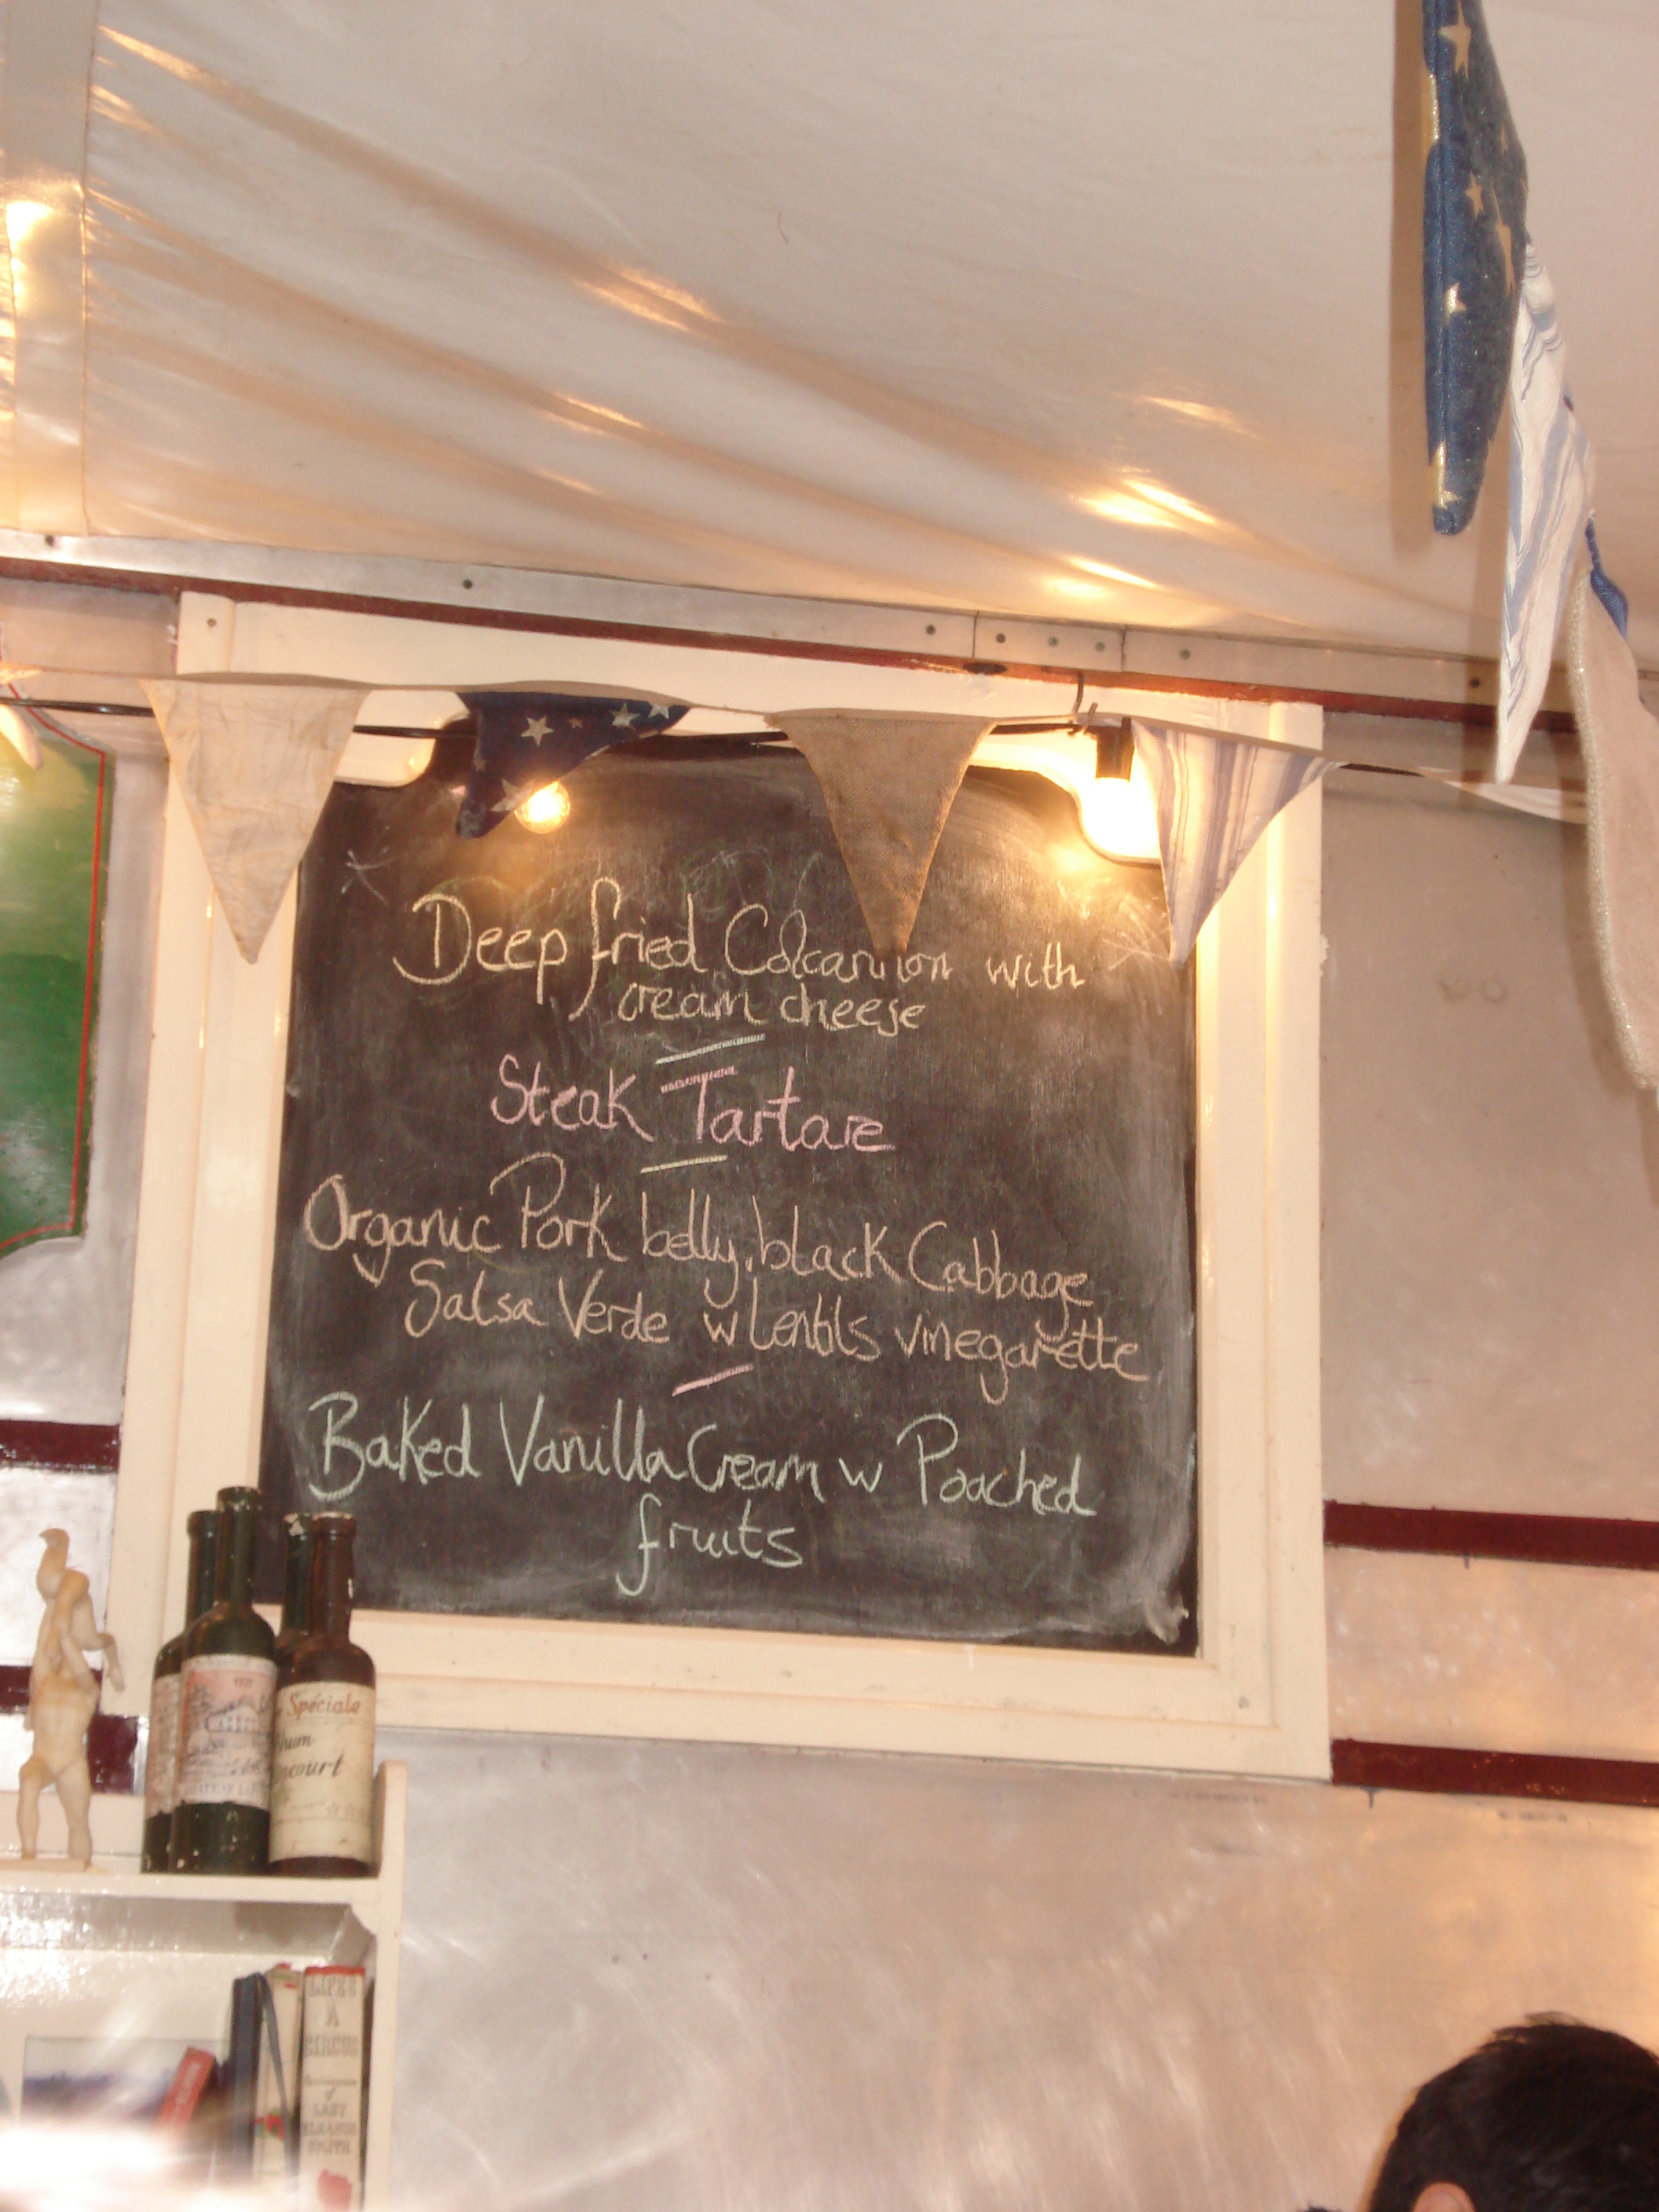 Deep fried Colcannon with
cream cheese
Steak Tartare
Organic Pork belly, black Cabbage
Salsa Verde w lentils vinegarette
Baked Vanilla Cream w Poached
fruits
Spéciale
LIFE'S
A
CIRCUS
LADY
ELEANOR
SMITH